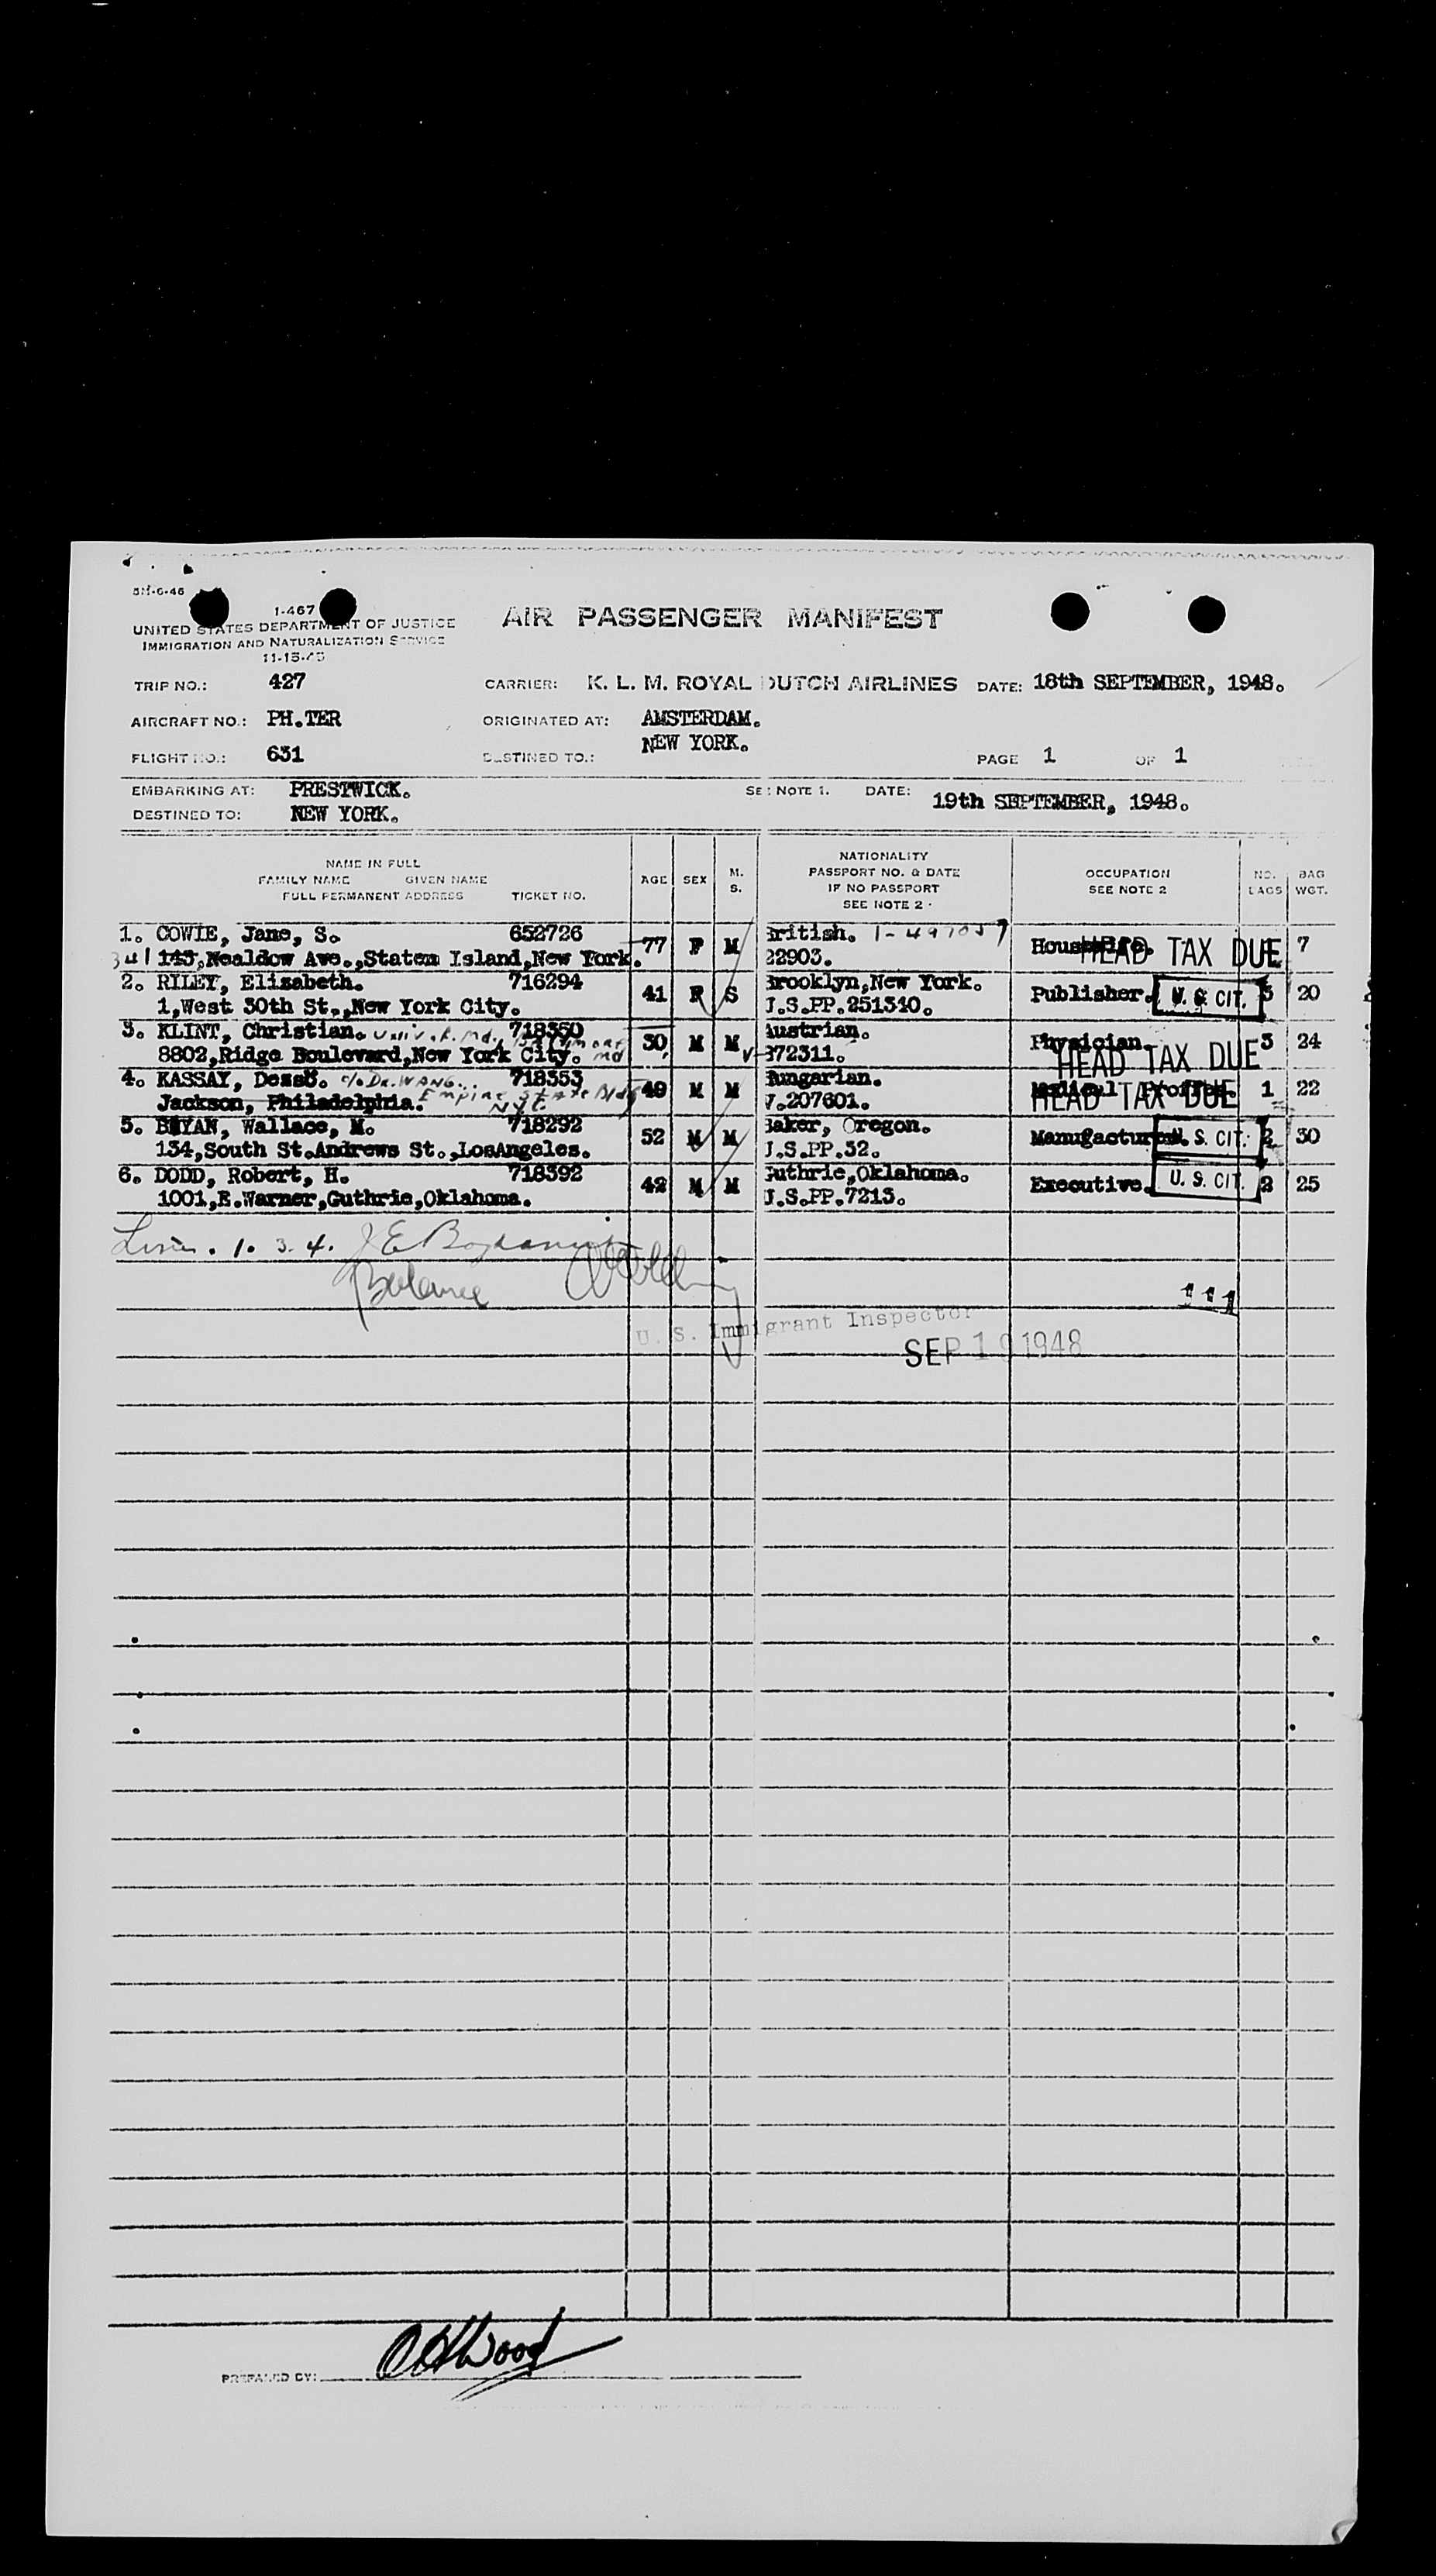 5M-6-46
I-467
UNITED STATES DEPARTMENT OF JUSTICE
IMMIGRATION AND NATURALIZATION SERVICE
11-15-45
AIR PASSENGER MANIFEST
TRIP NO.: 427 CARRIER: K. L. M. ROYAL DUTCH AIRLINES DATE: 18th SEPTEMBER, 1948.
AIRCRAFT NO.: PH.TER ORIGINATED AT: AMSTERDAM.
FLIGHT NO.: 631 DESTINED TO.: NEW YORK. PAGE 1 OF 1
EMBARKING AT: PRESTWICK. SEE NOTE 1. DATE: 19th SEPTEMBER, 1948.
DESTINED TO: NEW YORK.
NAME IN FULL
FAMILY NAME GIVEN NAME
FULL PERMANENT ADDRESS TICKET NO.
AGE SEX M. S.
NATIONALITY
PASSPORT NO. & DATE
IF NO PASSPORT
SEE NOTE 2
OCCUPATION
SEE NOTE 2
NO. BAGS
BAG WGT.
1. COWIE, Jane, S. 652726 77 F M British. HEAD TAX DUE 7
341 143,Nealdow Ave.,Staten Island,New York. 22903.
2. RILEY, Elizabeth. 716294 41 F S Brooklyn,New York. Publisher. U. S. CIT. 3 20
1,West 30th St.,New York City. U.S.PP.251340.
3. KLINT, Christian. Univ. of Md, Baltimore Md 718350 30 M M Austrian. Physician. HEAD TAX DUE 3 24
8802,Ridge Boulevard,New York City. 372311.
4. KASSAY, Dessö. c/o DR. WANG. 718353 49 M M Hungarian. HEAD TAX DUE 1 22
Jackson, Philadelphia. Empire State Bldg NYC V.207601.
5. BRYAN, Wallace, M. 718292 52 M M Baker, Oregon. Manufacturer. U. S. CIT. 2 30
134,South St.Andrews St.,LosAngeles. U.S.PP.32.
6. DODD, Robert, H. 718392 42 M M Guthrie,Oklahoma. Executive. U. S. CIT. 2 25
1001,E.Warner,Guthrie,Oklahoma. U.S.PP.7213.
Lines. 1. 3. 4.
Balance
111
U. S. Immigrant Inspector
SEP 19 1948
PREPARED BY: Wood